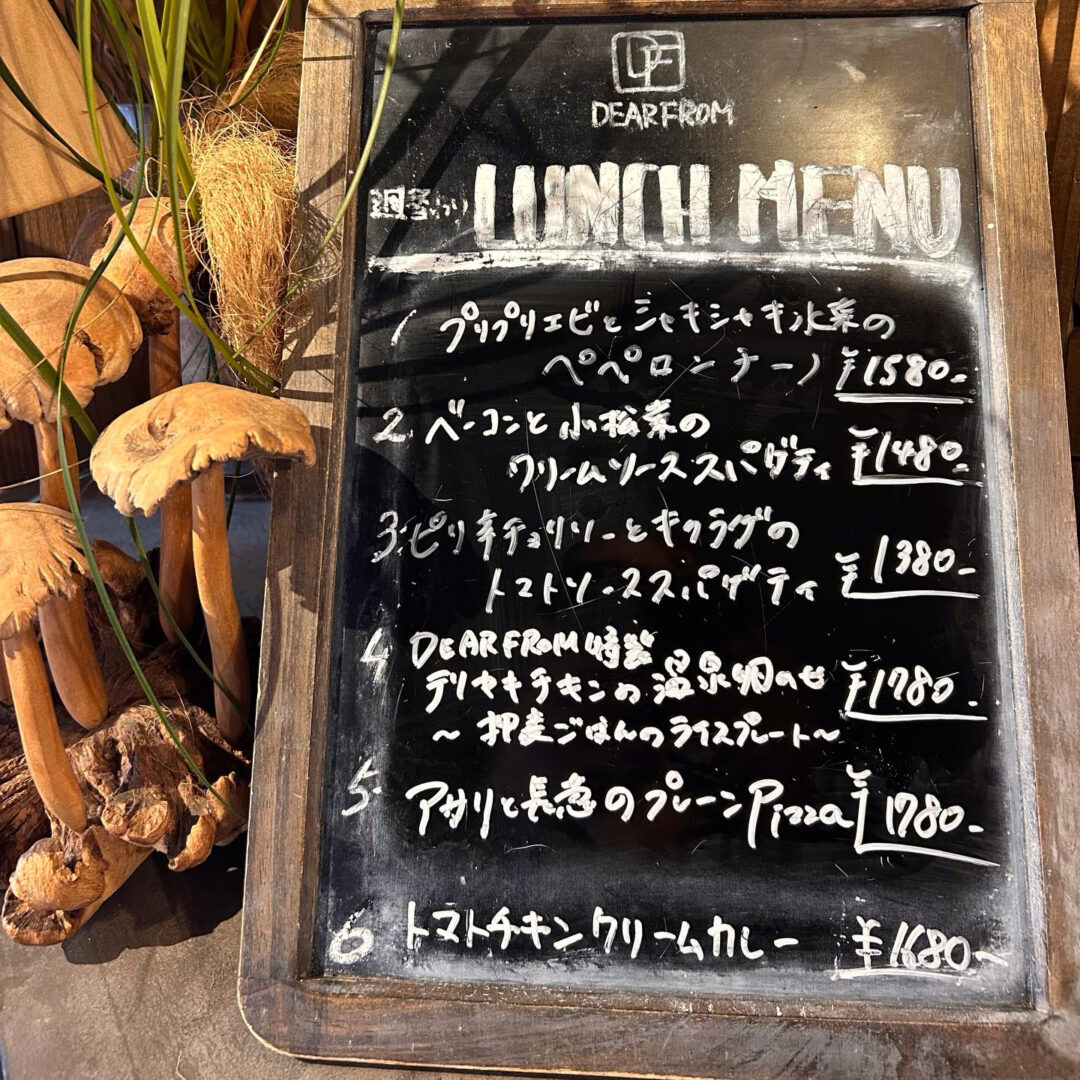 DF
DEAR FROM
週替わり LUNCH MENU
1 プリプリエビとシャキシャキ水菜の
ペペロンチーノ ¥1580-
2. ベーコンと小松菜の
クリームソーススパゲティ ¥1480-
3. ピリ辛チョリソーとキクラゲの
トマトソーススパゲティ ¥1380-
4 DEAR FROM 特製
テリヤキチキンの温泉卵のせ ¥1780-
～押麦ごはんのライスプレート～
5. アサリと長葱のプレーンPizza ¥1780-
6 トマトチキンクリームカレー ¥1680~